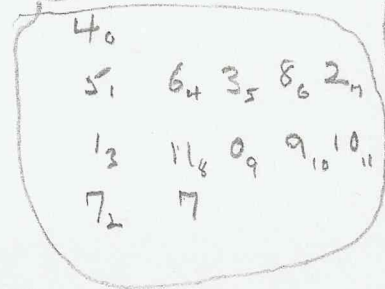 4₀
5₁ 6₄ 3₅ 8₆ 2₇
1₃ 11₈ 0₉ 9₁₀ 10₁₁
7₂ 7